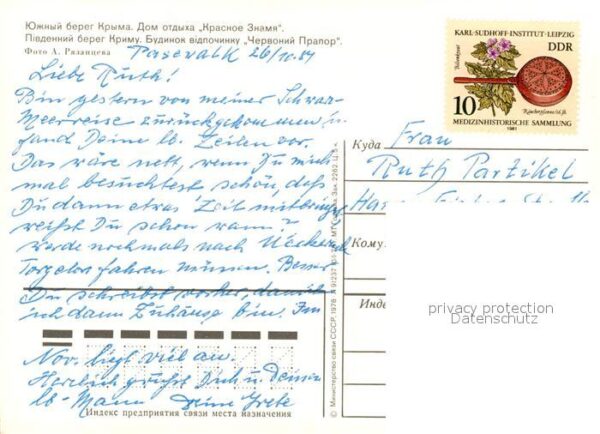 Южный берег Крыма. Дом отдыха „Красное Знамя".
Південний берег Криму. Будинок відпочинку „Червоний Прапор".
Фото А. Рязанцева
Pasewalk 26/10.84
Liebe Ruth!
Bin gestern von meiner Schwarz-
Meerreise zurückgekommen u.
fand Deine lb. Zeilen vor.
Das wäre nett, wenn Du mich
mal besuchtest schön, daß
Du dann etwas Zeit mitbringst
weißt Du schon wann?
werde nochmals nach
Torgelow fahren müssen. Besser
Du schreibst vorher, damit
ich dann Zuhause bin. Im
Nov. liegt viel an.
Herzlich grüßt Dich u. Deinen
lb. Mann Deine Grete
Индекс предприятия связи места назначения
© Министерство связи СССР, 1978
KARL-SUDHOFF-INSTITUT·LEIPZIG
DDR
10
MEDIZINHISTORISCHE SAMMLUNG
1981
Куда
Frau
Ruth Partikel
Кому
Инде
privacy protection
Datenschutz